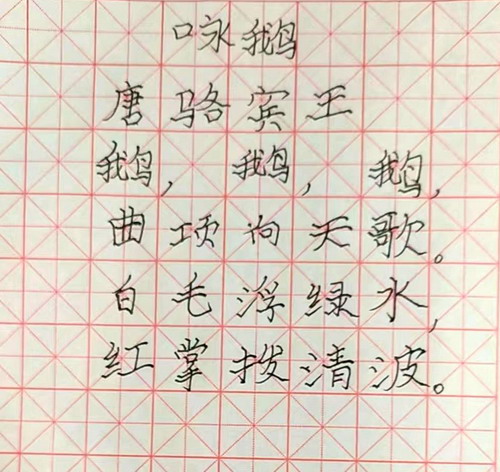 咏鹅
唐骆宾王
鹅,鹅,鹅,
曲项向天歌。
白毛浮绿水,
红掌拨清波。